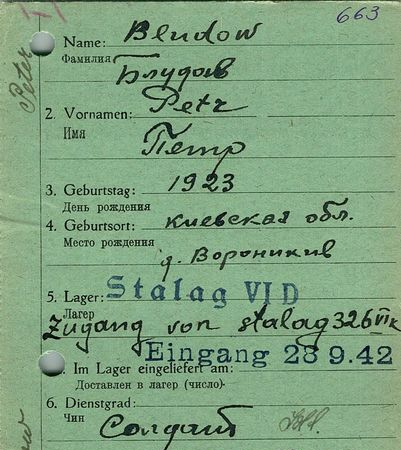 663
Name: Bludow
Фамилия Блудов
2. Vornamen: Petr
Имя Петр
3. Geburtstag: 1923
День рождения
4. Geburtsort: Киевская обл.
Место рождения д. Вороникив
5. Lager: Stalag VI D
Лагерь
Zugang von Stalag 326 VI K
Eingang 28 9.42
. Im Lager eingeliefert am:
Доставлен в лагерь (число)
6. Dienstgrad:
Чин Солдат
Peter